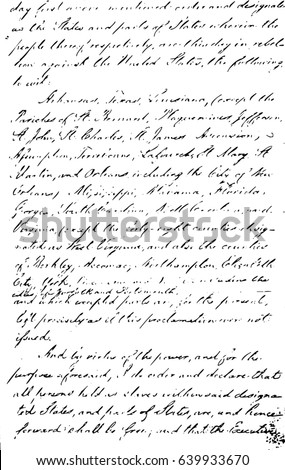 day first above mentioned order and designate
as the States and parts of States wherein the
people thereof respectively, are this day in rebel-
lion against the United States, the following,
to wit:
Arkansas, Texas, Louisiana, (except the
Parishes of St. Bernard, Plaquemines, Jefferson,
St. John, St. Charles, St. James, Ascension,
Assumption, Terrebonne, Lafourche, St. Mary, St.
Martin, and Orleans, including the City of New
Orleans) Mississippi, Alabama, Florida,
Georgia, South Carolina, North Carolina, and
Virginia, (except the
as West Virginia, and also the counties
of Berkley, Accomac, Northampton, Elizabeth
City, York,
Norfolk and Portsmouth
and which excepted parts are, for the present,
left precisely as if this proclamation were not
issued.
And by virtue of the power, and for the
purpose aforesaid, I do order and declare that
all persons held as slaves within said designa-
ted States, and parts of States, are, and hence-
forward shall be free; and that the Executive
shutterstock
shutterstock
IMAGE ID: 639933670
www.shutterstock.com